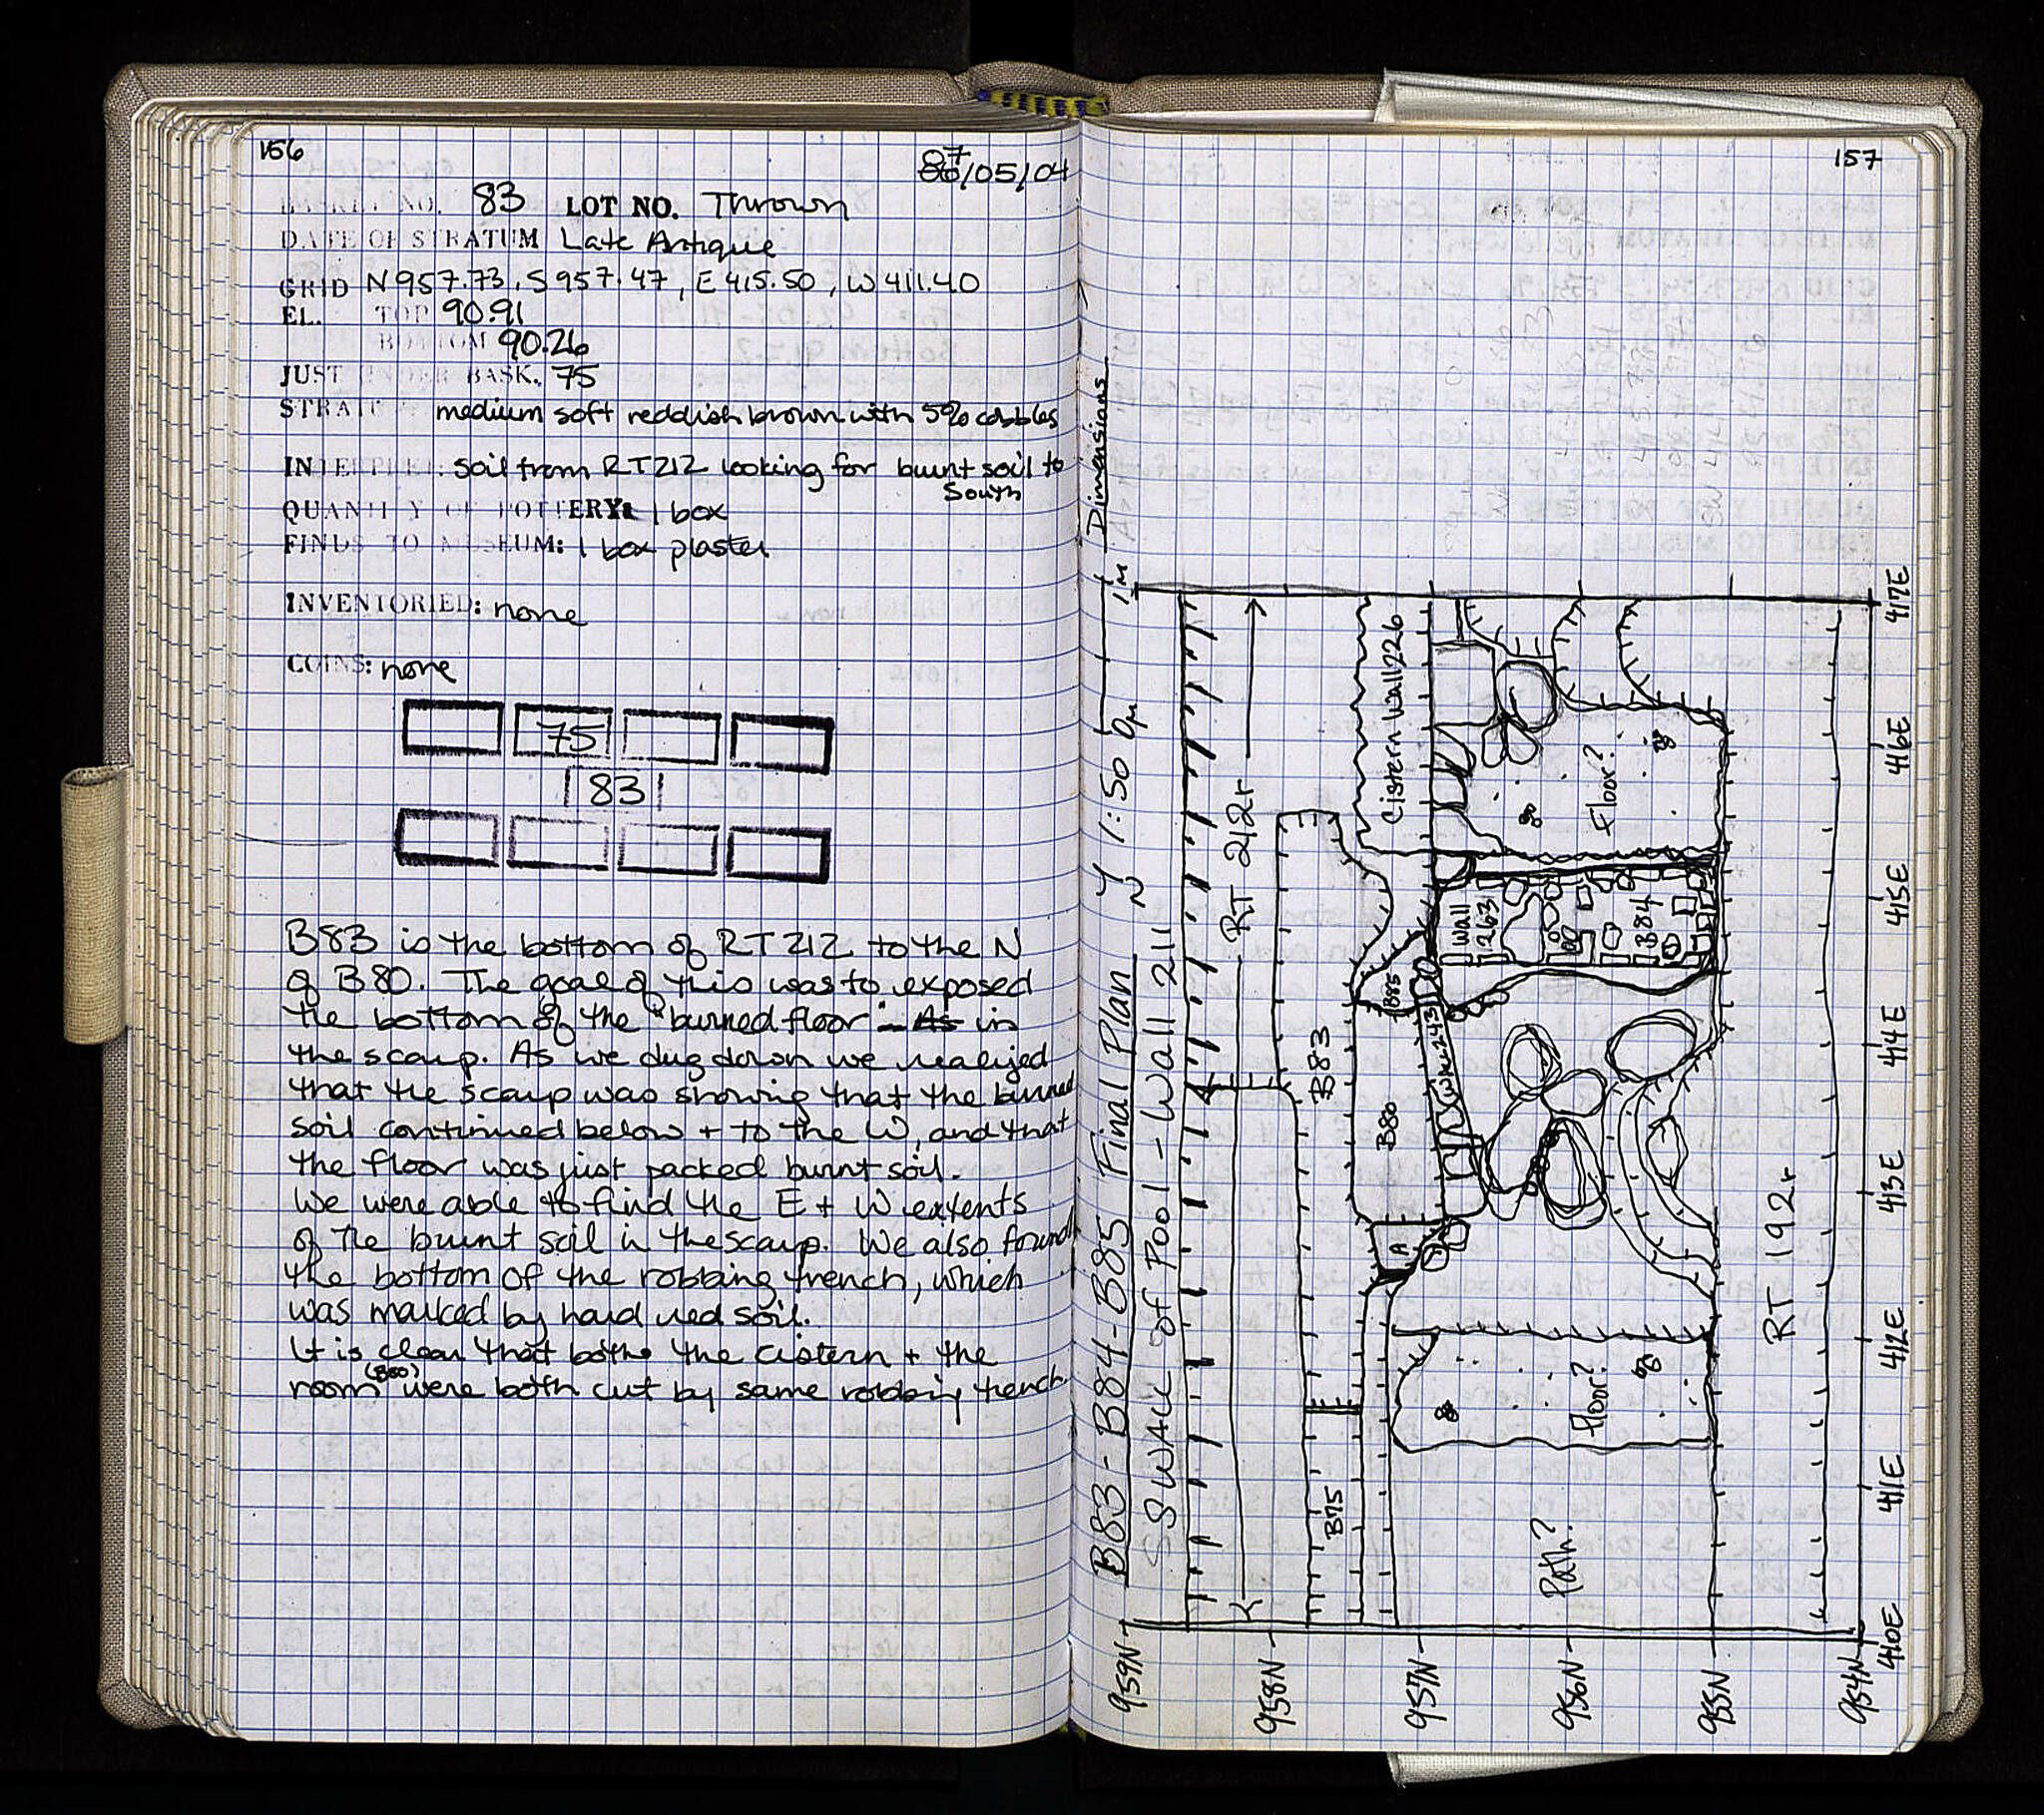 156
87/05/04
BASKET NO. 83 LOT NO. Thrown
DATE OF STRATUM Late Antique
GRID N 957.73, S 957.47, E 415.50, W 411.40
EL. TOP 90.91
BOTTOM 90.26
JUST UNDER BASK. 75
STRATUM medium soft reddish brown with 5% cobbles
INTERPRET: soil from RT212 looking for burnt soil to
South
QUANTITY OF POTTERY: 1 box
FINDS TO MUSEUM: 1 box plaster
INVENTORIED: none
COINS: none
75
83
B83 is the bottom of RT 212 to the N
of B80. The goal of this was to exposed
the bottom of the "burned floor" - As in
the scarp. As we dug down we realized
that the scarp was showing that the burned
soil continued below + to the W, and that
the floor was just packed burnt soil.
We were able to find the E + W extents
of the burnt soil in the scarp. We also found
the bottom of the robbing trench, which
was marked by hard red soil.
It is clear that both the cistern + the
room (B80) were both cut by same robbing trench
157
Dimensions
B83-B84-B85 Final Plan N 1:50 0m 1m
S Wall of Pool - Wall 211
RT 212r
B83
B75
B80
B85
A
Cistern Wall 226
Wall 243
Wall
263
B84
Floor?
Floor?
Path?
RT 192r
959N
958N
957N
956N
955N
954N
410E
411E
412E
413E
414E
415E
416E
417E